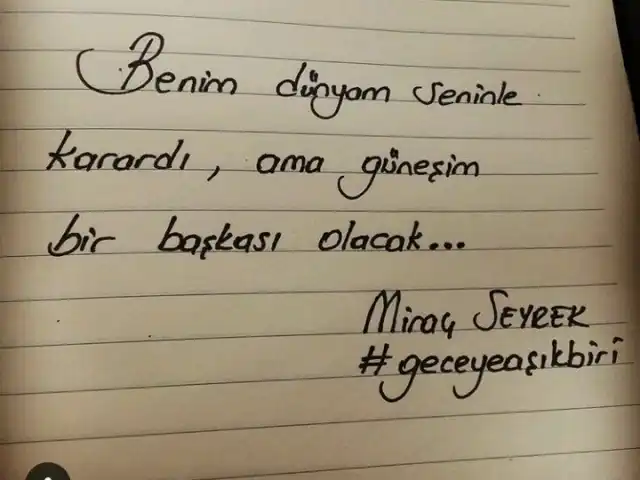 Benim dünyam seninle
karardı, ama güneşim
bir başkası olacak...
Miraç SEYREK
#geceyeaşıkbiri